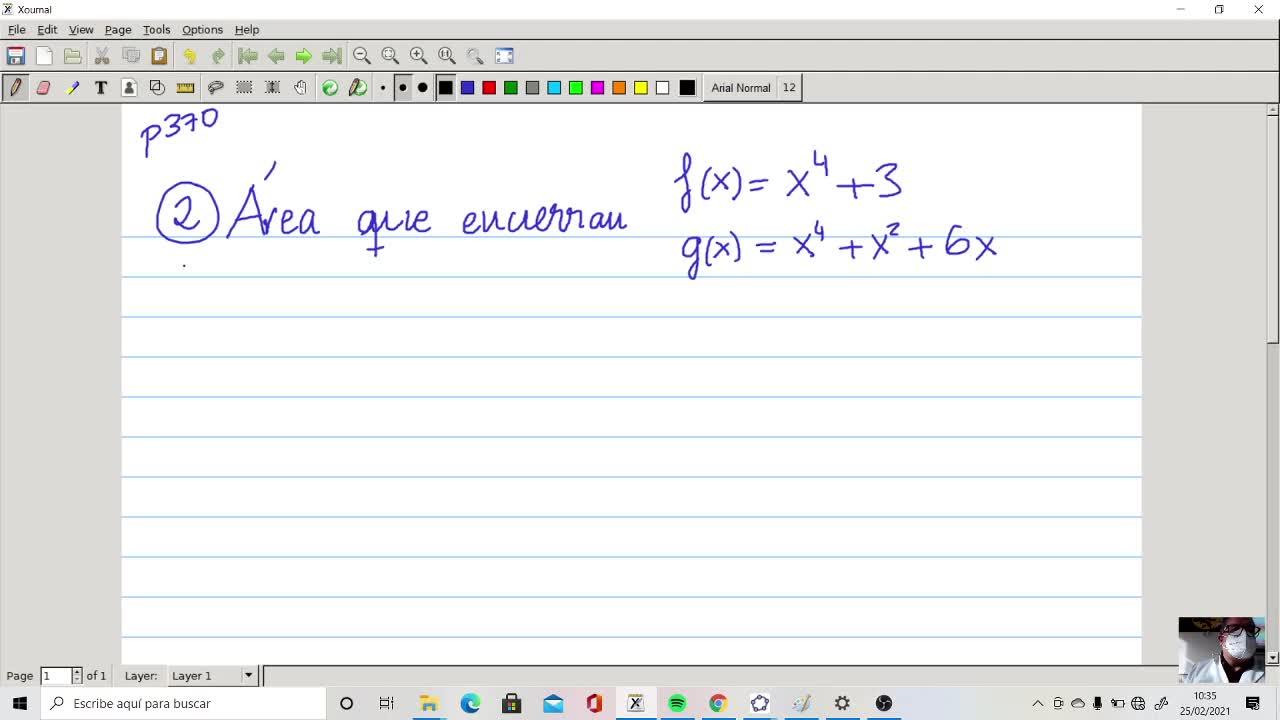 Xournal
File Edit View Page Tools Options Help
Arial Normal 12
p370
② Área que encierran f(x) = x⁴ + 3
g(x) = x⁴ + x² + 6x
Page 1 of 1 Layer: Layer 1
Escribe aquí para buscar
10:35
25/02/2021